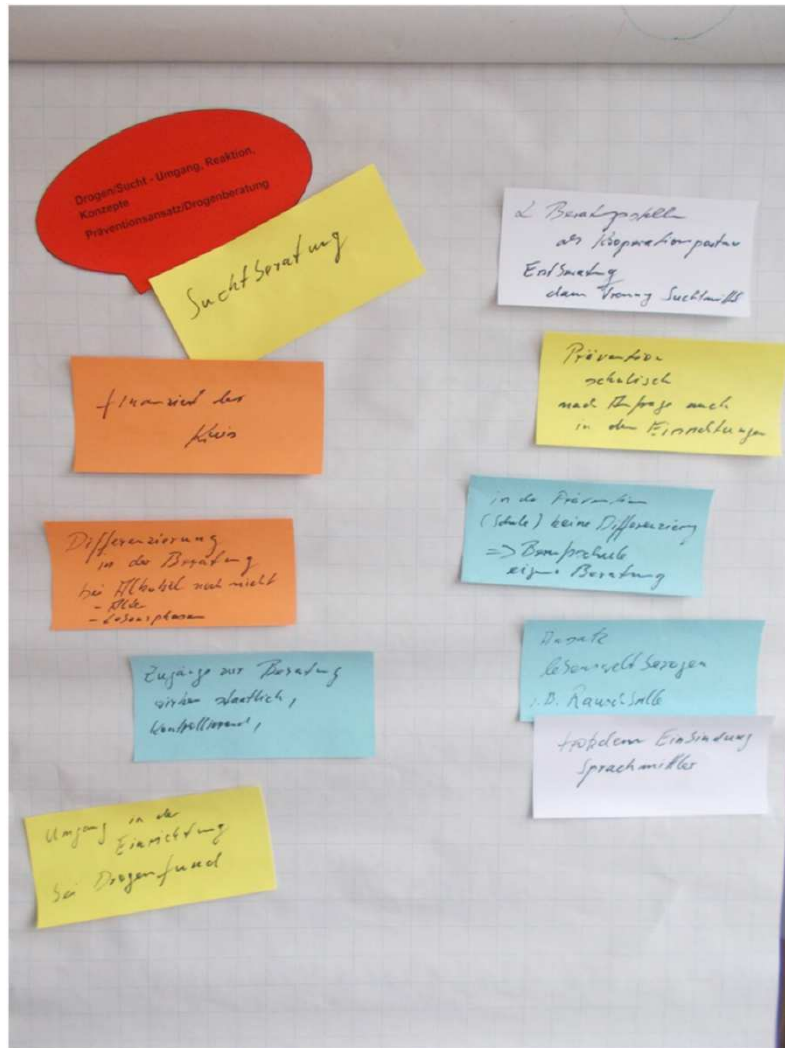 Drogen/Sucht - Umgang, Reaktion,
Konzepte
Präventionsansatz/Drogenberatung
Suchtberatung
finanziert der
Kreis
Differenzierung
in der Beratung
bei Alkohol noch nicht
- Alter
- Lebensphasen
Zugänge zur Beratung
wirken staatlich,
kontrollierend,
Umgang in der
Einrichtung
bei Drogenfund
2 Beratungsstellen
als Kooperationspartner
Erstberatung
dann Suchtmittel
Prävention
schulisch
nach Anfrage auch
in den Einrichtungen
in der Prävention
(Schule) keine Differenzierung
=> Berufsschule
eigene Beratung
Ansatz
lebensweltbezogen
z.B. Rauschbrille
trotzdem Einbindung
Sprachmittler